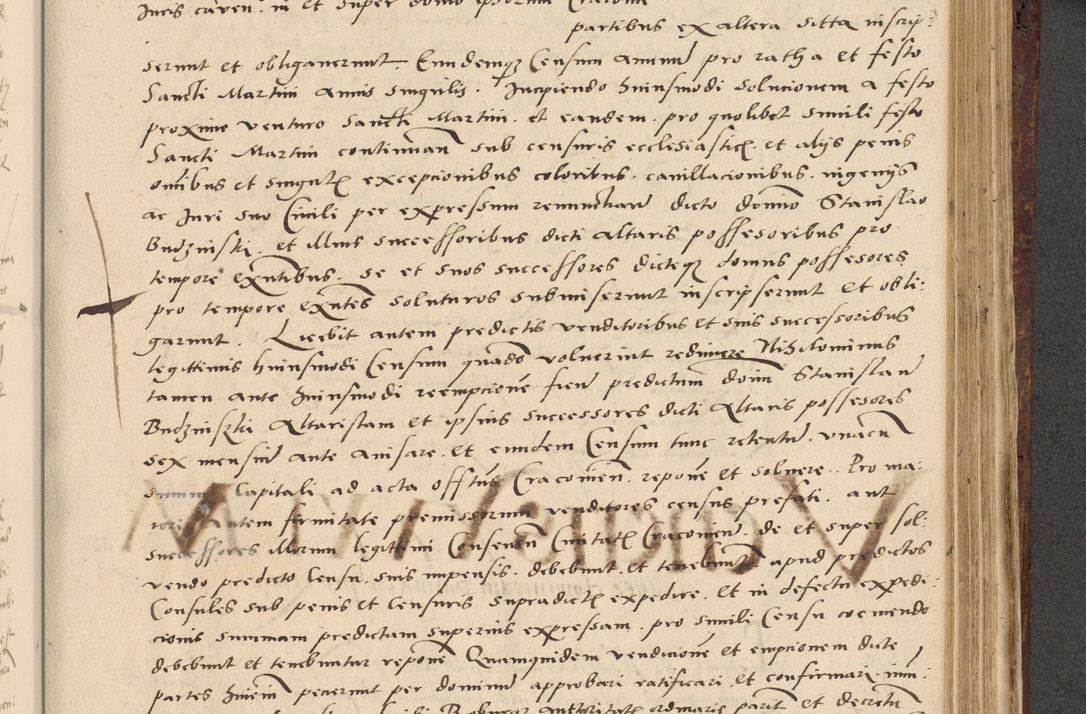 Juris craven. in et super domo ipsorum Cracovie
partibus ex altera sitta inscrip:
serunt et obliganerunt. Eundemq3 Censum annuu pro ratha et festo
Sancti Martini annis singulis. Incipiendo huiusmodi solucionem a festo
proximo venturo Sancti Martini. et eandem. pro quolibet simili festo
Sancti Martini continuan sub censuris ecclesiasticis et alijs penis
omibus et singulis excepcionibus coloribus. canillacionibus. ingenijs
ac Juri suo Civili per expressum renunctian dicto domino Stanislao
Budzinski. et illius successoribus dicti altaris possessoribus pro
tempore exntibus. se et suos successores dicteq3 domus possesores
pro tempore exntes soluturos submiserunt inscripserunt et obli:
garunt. Licebit autem predictis venditoribus et suis successoribus
legittimis huiusmodi Censum quando voluerint redimere Nihilominus
tamen ante huiusmodi reempcione fien predictum domin Stanislau
Budziniszki Altaristam et ipsius successores dicti Altaris possesores
sex mensiu ante avisare. et eundem Censum tunc retentu. vnacu
summa Capitali ad acta offitus Cracovien. repone et soluere. Pro ma:
iori autem firmitate premissorum venditores census prefati. ant
successores illorum legittimi Consensun Civitatis Cracovien. de et super sol:
vendo predicto Censu. suis impensis. debebunt. et tenebunt apud predictos
Consules sub penis et Censuris supradictis expedire. Et in defectu expedi:
cionis summam predictam superius expressam. pro simili Censu coemendo
debebunt et tenebuntur repone Quamquidem vendicione et empcionem dicte
partes huien pecierunt per dominu approbari ratificari. et confirmari.
auttoritate ordinaria parit et decretu